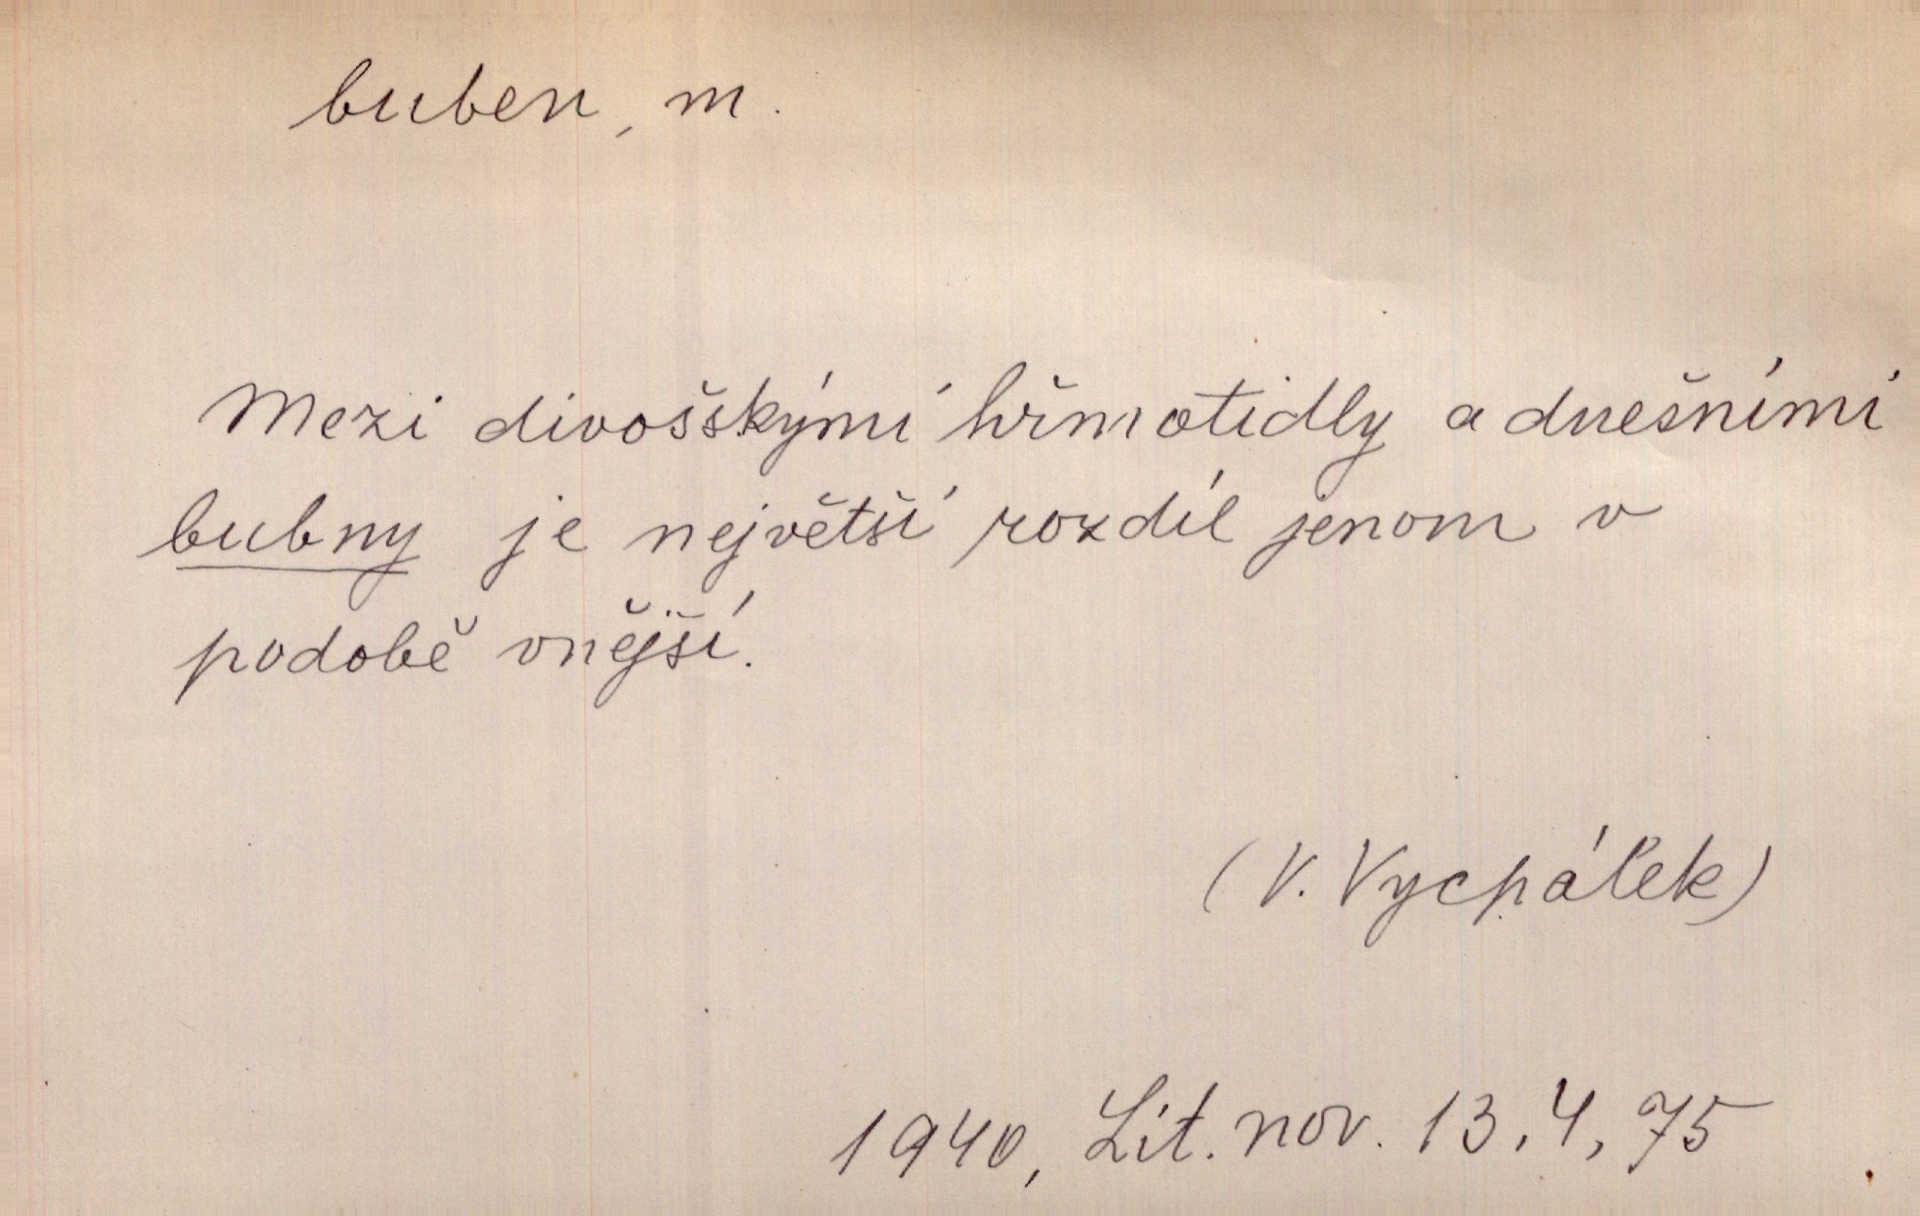 buben, m.
Mezi divošskými hřmotidly a dnešními
bubny je největší rozdíl jenom v
podobě vnější.
(V. Vychpálek)
1940, Lit. nov. 13, 4, 75